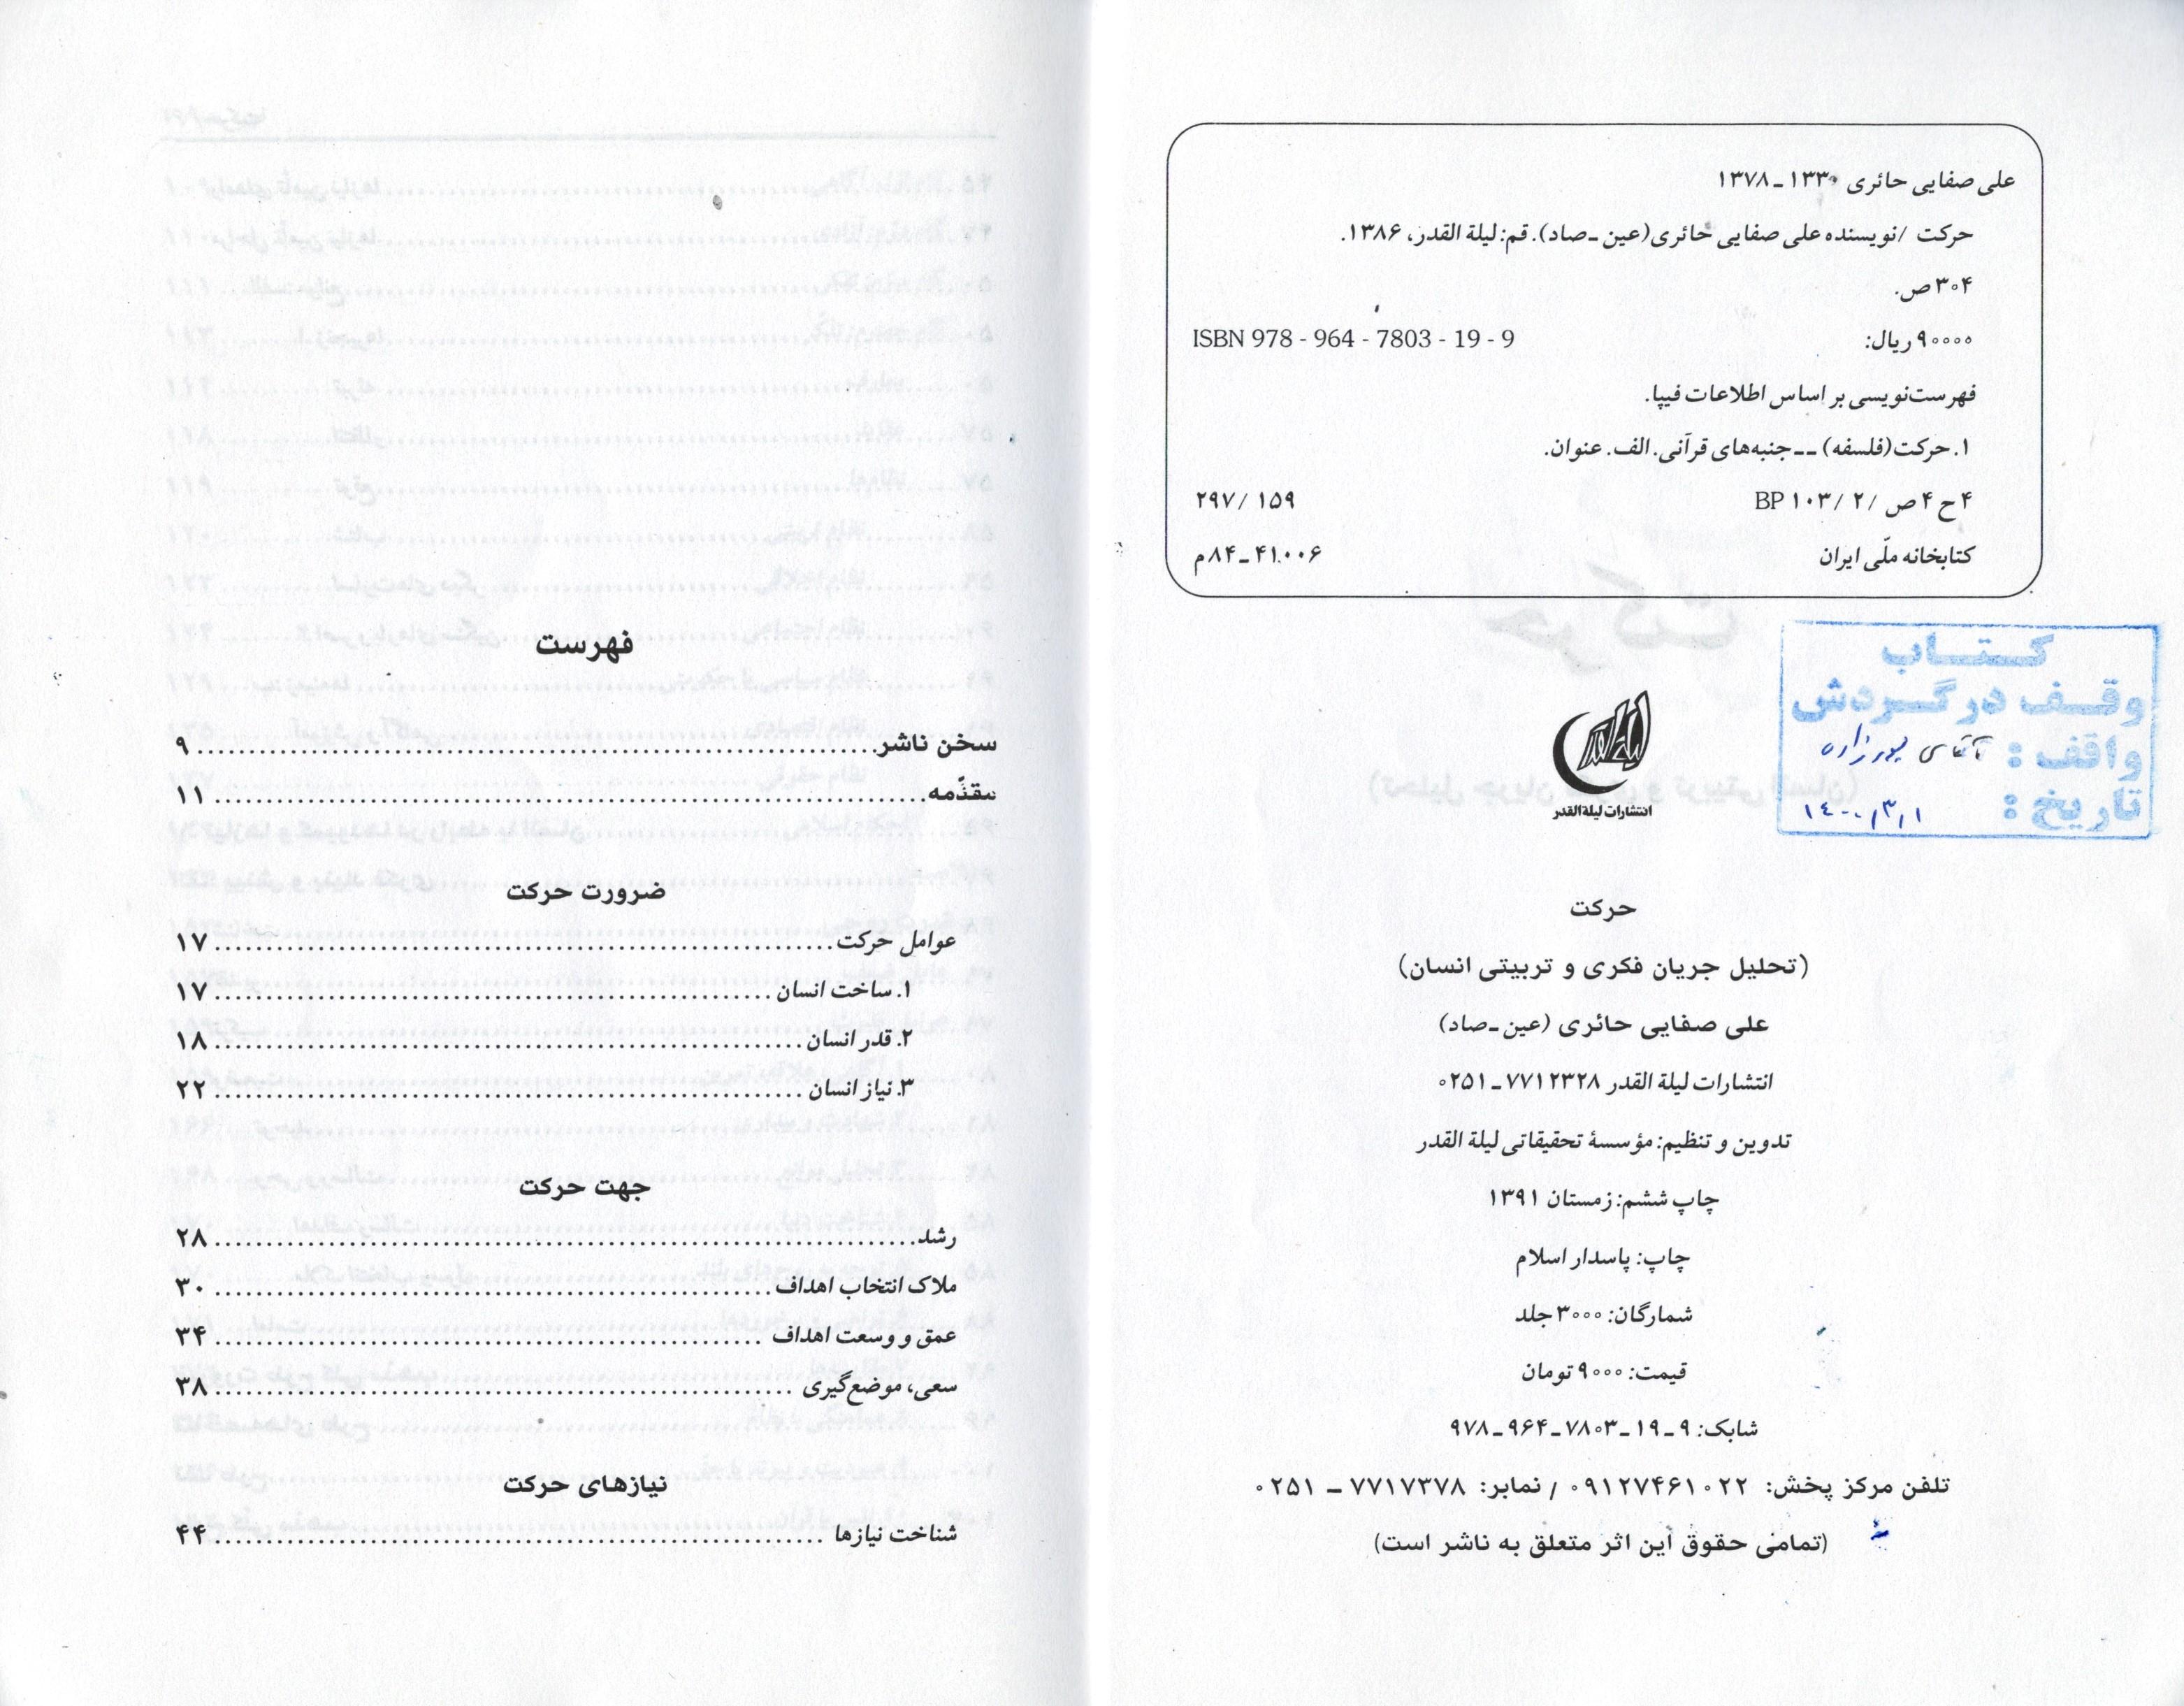 علی صفایی حائری ۱۳۳۰ـ۱۳۷۸
حرکت /نویسنده علی صفایی حائری(عین ـ صاد). قم: لیلة القدر، ۱۳۸۶.
۳۰۴ ص.
۹۰۰۰۰ ریال: ISBN 978 - 964 - 7803 - 19 - 9
فهرست‌نویسی بر اساس اطلاعات فیپا.
۱. حرکت(فلسفه) ــ جنبه‌های قرآنی. الف. عنوان.
۴ ح ۴ ص / ۲ / ۱۰۳ BP ۲۹۷/ ۱۵۹
کتابخانه ملّی ایران ۴۱۰۰۶ـ۸۴م
کتاب
وقف در گردش
واقف : آقای
تاریخ : ۱۴۰۰/۳/۱
لیلة القدر
انتشارات لیلة‌القدر
حرکت
(تحلیل جریان فکری و تربیتی انسان)
علی صفایی حائری (عین ـ صاد)
انتشارات لیلة القدر ۷۷۱۲۳۲۸ـ۰۲۵۱
تدوین و تنظیم: مؤسسهٔ تحقیقاتی لیلة القدر
چاپ ششم: زمستان ۱۳۹۱
چاپ: پاسدار اسلام
شمارگان: ۳۰۰۰ جلد
قیمت: ۹۰۰۰ تومان
شابک: ۹ـ۱۹ـ۷۸۰۳ـ۹۶۴ـ۹۷۸
تلفن مرکز پخش: ۰۹۱۲۷۴۶۱۰۲۲ / نمابر: ۷۷۱۷۳۷۸ ـ ۰۲۵۱
(تمامی حقوق این اثر متعلق به ناشر است)
فهرست
سخن ناشر ........ ۹
مقدّمه ........ ۱۱
ضرورت حرکت
عوامل حرکت ........ ۱۷
۱. ساخت انسان ........ ۱۷
۲. قدر انسان ........ ۱۸
۳. نیاز انسان ........ ۲۲
جهت حرکت
رشد ........ ۲۸
ملاک انتخاب اهداف ........ ۳۰
عمق و وسعت اهداف ........ ۳۴
سعی، موضع‌گیری ........ ۳۸
نیازهای حرکت
شناخت نیازها ........ ۴۴